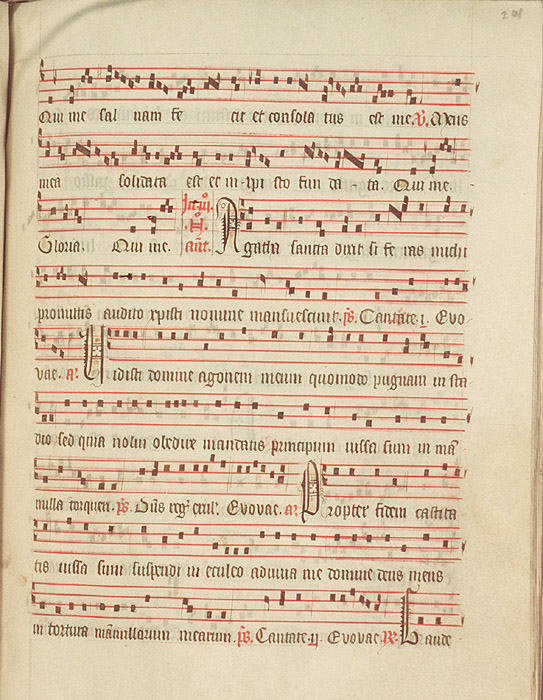 201
Qui me sal uum fe cit et consola tus est me. V. Mens
mea solidata est et in xpi sto fun da ta. Qui me.
Gloria. Qui me. añt. Agatha sancta dixit si fe ras michi
promittis audito xpisti nomine mansuescunt. ps. Cantate. j. Evo
vae. a. Vidisti domine agonem meum quomodo pugnaui in sta
dio sed quia nolui obedire mandatis principium iussa sum in mā
milla torqueri. ps. Dñs reg. exul. Evovae. a. Propter fidem castita
tis iussa sum suspendi in eculeo adiuua me domine deus meus
in tortura mamillarum mearum. ps. Cantate. ij. Evovae. Laude